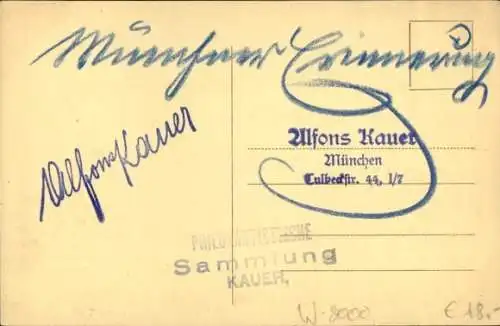 Münchner Erinnerung
Alfons Kauer
Alfons Kauer
München
Tulbeckstr. 44, I/7
PHILOKARTISTISCHE
Sammlung
KAUER,
W-8000
€ 18.-